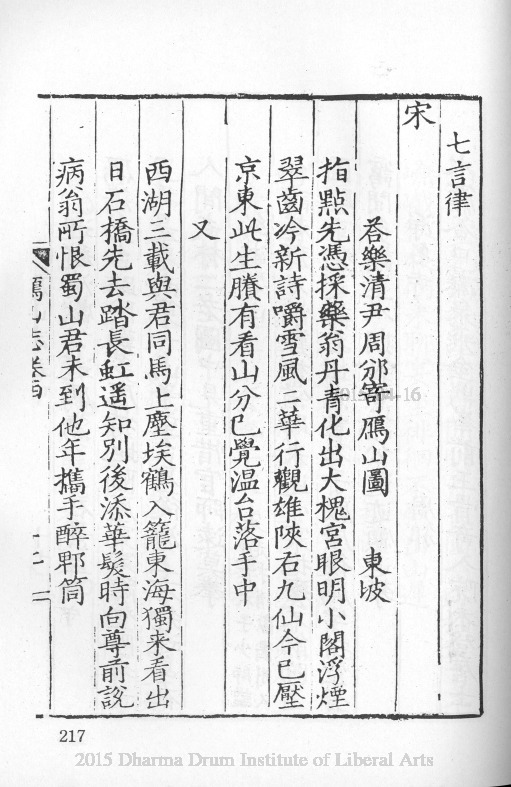 七言律
宋
荅樂清尹周邠寄鴈山圖　東坡
指點先憑採藥翁丹青化出大槐宮眼明小閣浮煙
翠齒冷新詩嚼雪風二華行觀雄陝右九仙今已壓
京東此生賸有看山分已覺温台落手中
又
西湖三載與君同馬上塵埃鶴入籠東海獨来看出
日石橋先去踏長虹遥知別後添華髮時向尊前說
病翁所恨蜀山君未到他年攜手醉郫筒
鴈山志卷四
217
2015 Dharma Drum Institute of Liberal Arts